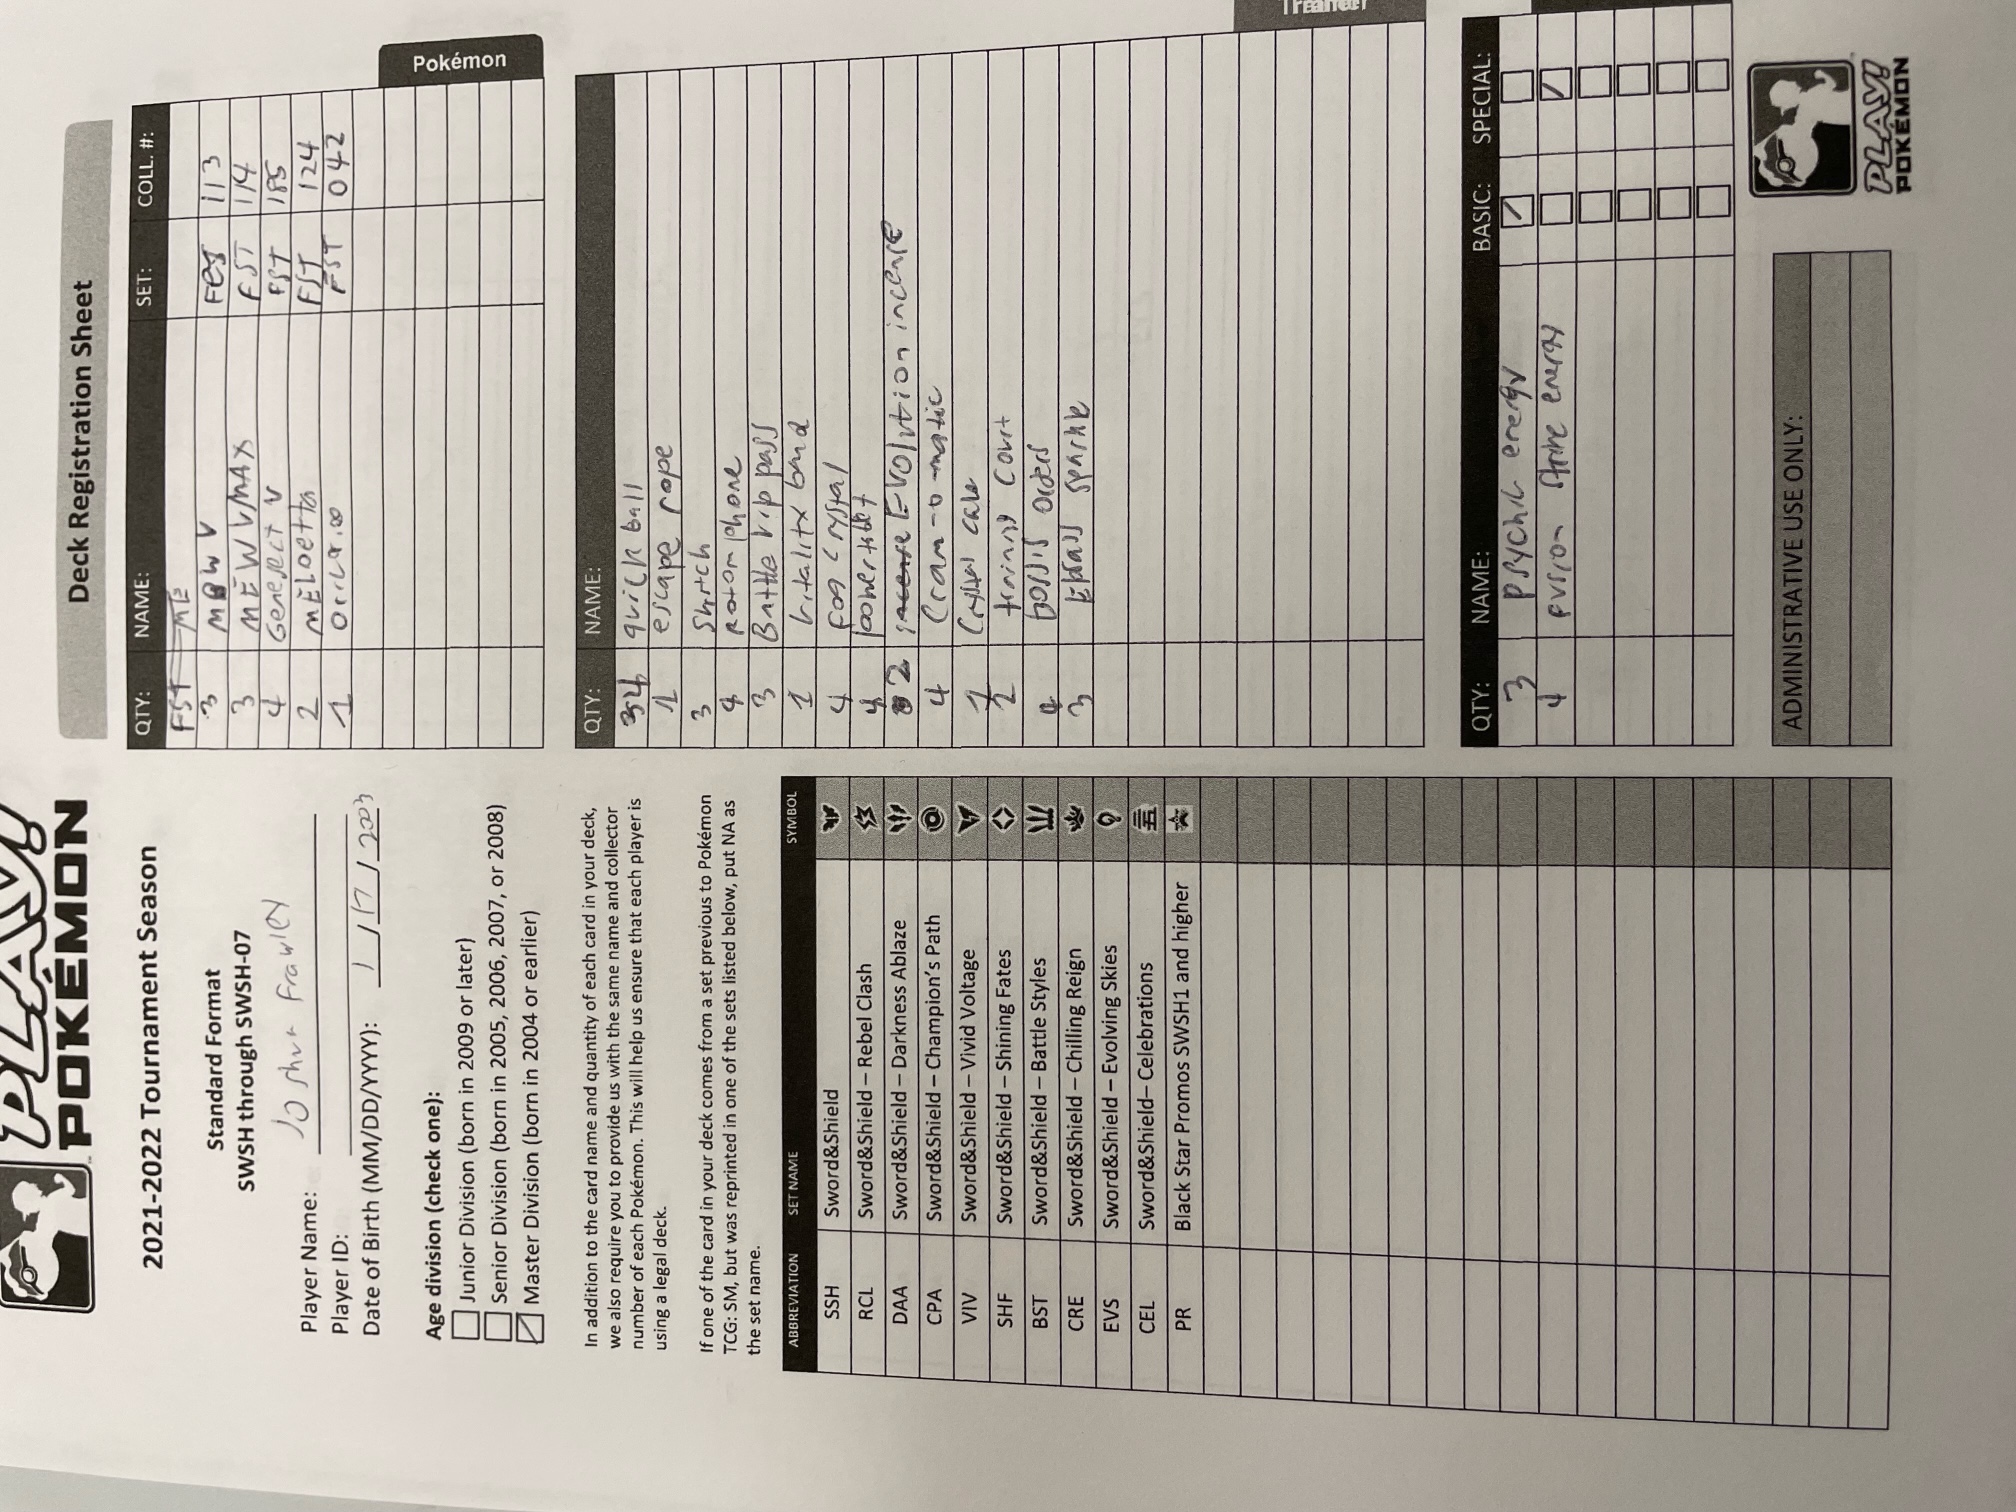 PLAY!
POKÉMON
2021-2022 Tournament Season
Standard Format
SWSH through SWSH-07
Player Name: Joshua Frawley
Player ID:
Date of Birth (MM/DD/YYYY): 1 / 17 / 2003
Age division (check one):
Junior Division (born in 2009 or later)
Senior Division (born in 2005, 2006, 2007, or 2008)
Master Division (born in 2004 or earlier)
In addition to the card name and quantity of each card in your deck,
we also require you to provide us with the same name and collector
number of each Pokémon. This will help us ensure that each player is
using a legal deck.
If one of the card in your deck comes from a set previous to Pokémon
TCG: SM, but was reprinted in one of the sets listed below, put NA as
the set name.
ABBREVIATION SET NAME SYMBOL
SSH Sword&Shield
RCL Sword&Shield – Rebel Clash
DAA Sword&Shield – Darkness Ablaze
CPA Sword&Shield – Champion's Path
VIV Sword&Shield – Vivid Voltage
SHF Sword&Shield – Shining Fates
BST Sword&Shield – Battle Styles
CRE Sword&Shield – Chilling Reign
EVS Sword&Shield – Evolving Skies
CEL Sword&Shield– Celebrations
PR Black Star Promos SWSH1 and higher
Deck Registration Sheet
QTY: NAME: SET: COLL. #:
FST ME
3 MEW V FST 113
3 MEW VMAX FST 114
4 Genesect V FST 185
2 MELoetta FST 124
1 Oricorio FST 042
Pokémon
QTY: NAME:
4 quick ball
1 escape rope
3 Switch
4 Rotom phone
3 Battle vip pass
1 Vitality band
4 Fog Crystal
4 power tablet
2 incense Evolution incense
4 Cram-o-matic
1 Crystal cave
2 training court
bossis orders
3 Elesas sparkle
Trainer
QTY: NAME: BASIC: SPECIAL:
3 Psychic energy
4 Fusion Strike energy
ADMINISTRATIVE USE ONLY:
PLAY!
POKÉMON